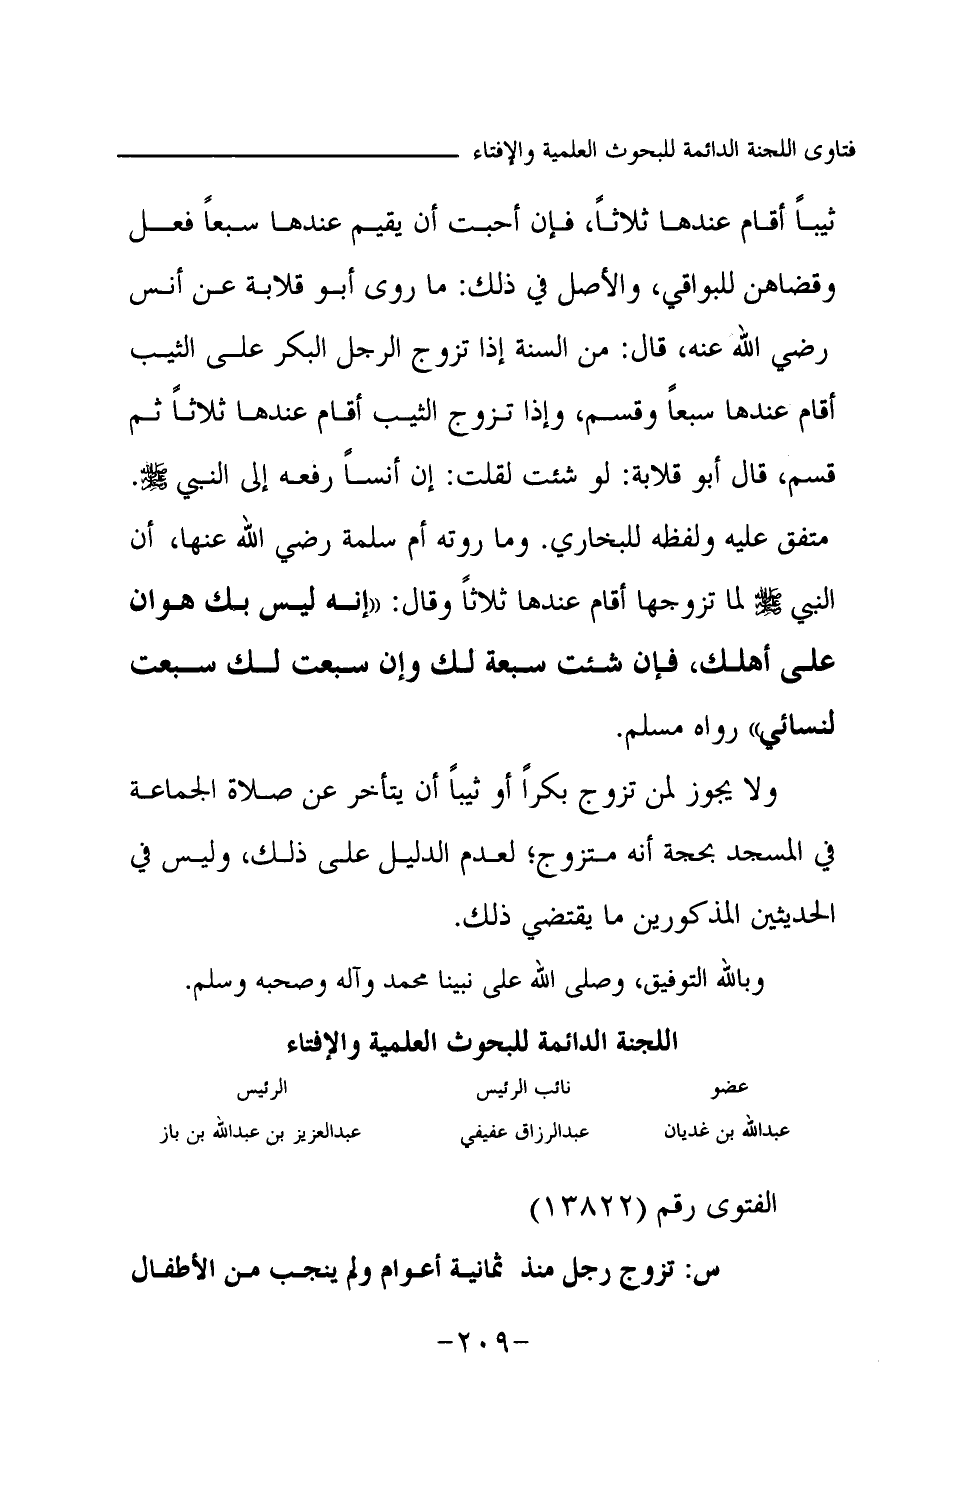 فتاوى اللجنة الدائمة للبحوث العلمية والإفتاء
ثيباً أقام عندها ثلاثاً، فإن أحبت أن يقيم عندها سبعاً فعل
وقضاهن للبواقي، والأصل في ذلك: ما روى أبو قلابة عن أنس
رضي الله عنه، قال: من السنة إذا تزوج الرجل البكر على الثيب
أقام عندها سبعاً وقسم، وإذا تزوج الثيب أقام عندها ثلاثاً ثم
قسم، قال أبو قلابة: لو شئت لقلت: إن أنساً رفعه إلى النبي ﷺ.
متفق عليه ولفظه للبخاري. وما روته أم سلمة رضي الله عنها، أن
النبي ﷺ لما تزوجها أقام عندها ثلاثاً وقال: «إنه ليس بك هوان
على أهلك، فإن شئت سبعة لك وإن سبعت لك سبعت
لنسائي» رواه مسلم.
ولا يجوز لمن تزوج بكراً أو ثيباً أن يتأخر عن صلاة الجماعة
في المسجد بحجة أنه متزوج؛ لعدم الدليل على ذلك، وليس في
الحديثين المذكورين ما يقتضي ذلك.
وبالله التوفيق، وصلى الله على نبينا محمد وآله وصحبه وسلم.
اللجنة الدائمة للبحوث العلمية والإفتاء
عضو نائب الرئيس الرئيس
عبدالله بن غديان عبدالرزاق عفيفي عبدالعزيز بن عبدالله بن باز
الفتوى رقم (١٣٨٢٢)
س: تزوج رجل منذ ثمانية أعوام ولم ينجب من الأطفال
-٢٠٩-